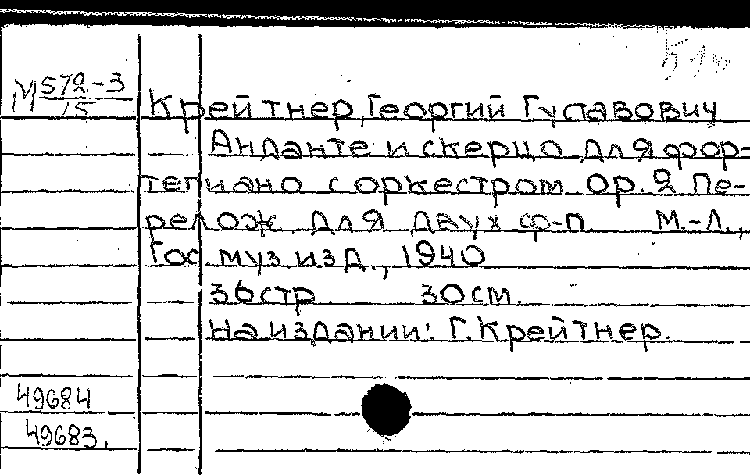 М 572-3
15
Крейтнер, Георгий Густавович
Анданте и скерцо для фор-
тепиано с оркестром Op. 2 Пе-
релож. для двух ф-п М.-Л.,
Гос. муз. изд., 1940
36 стр 30 см.
На издании: Г. Крейтнер.
49684
49683.